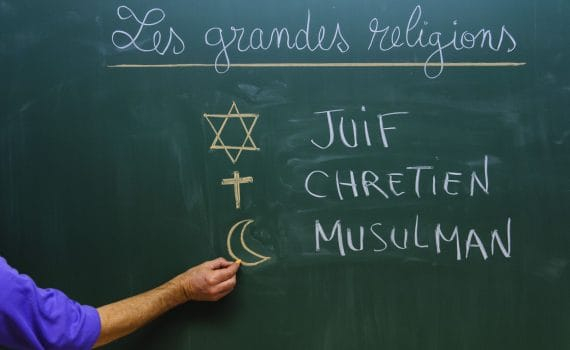 Les grandes religions
JUIF
CHRETIEN
MUSULMAN